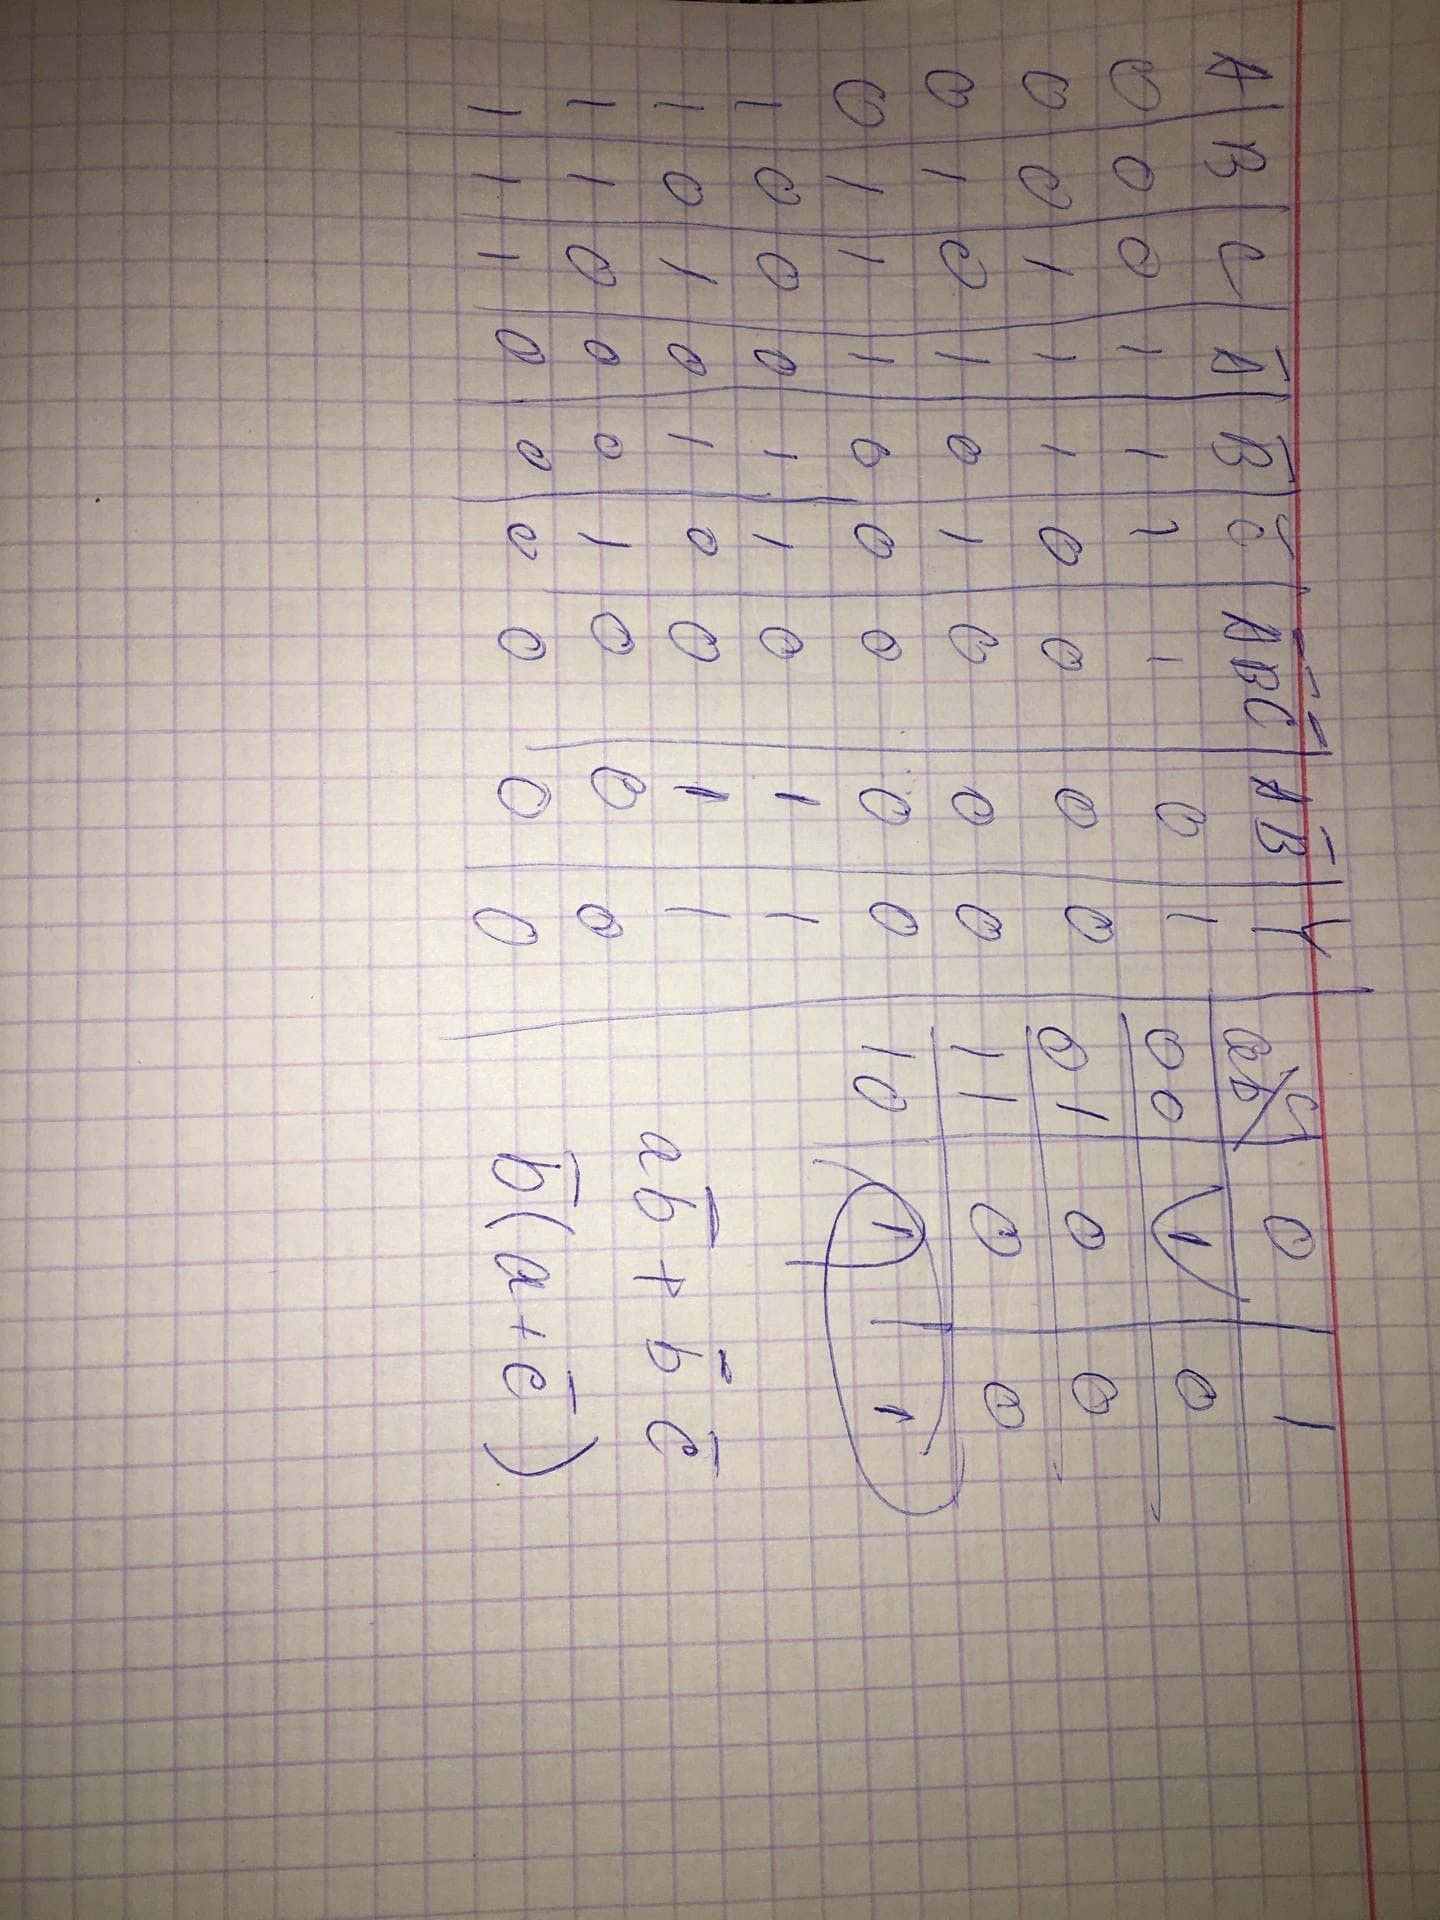 A B C A̅ B̅ C̅ A̅B̅C̅ AB̅ Y
0 0 0 1 1 1 1 0 1
0 0 1 1 1 0 0 0 0
0 1 0 1 0 1 0 0 0
0 1 1 1 0 0 0 0 0
1 0 0 0 1 1 0 1 1
1 0 1 0 1 0 0 1 1
1 1 0 0 0 1 0 0 0
1 1 1 0 0 0 0 0 0
ab/c 0 1
00 1 0
01 0 0
11 0 0
10 1 1
ab̅ + b̅ c̅
b̅(a+c̅)